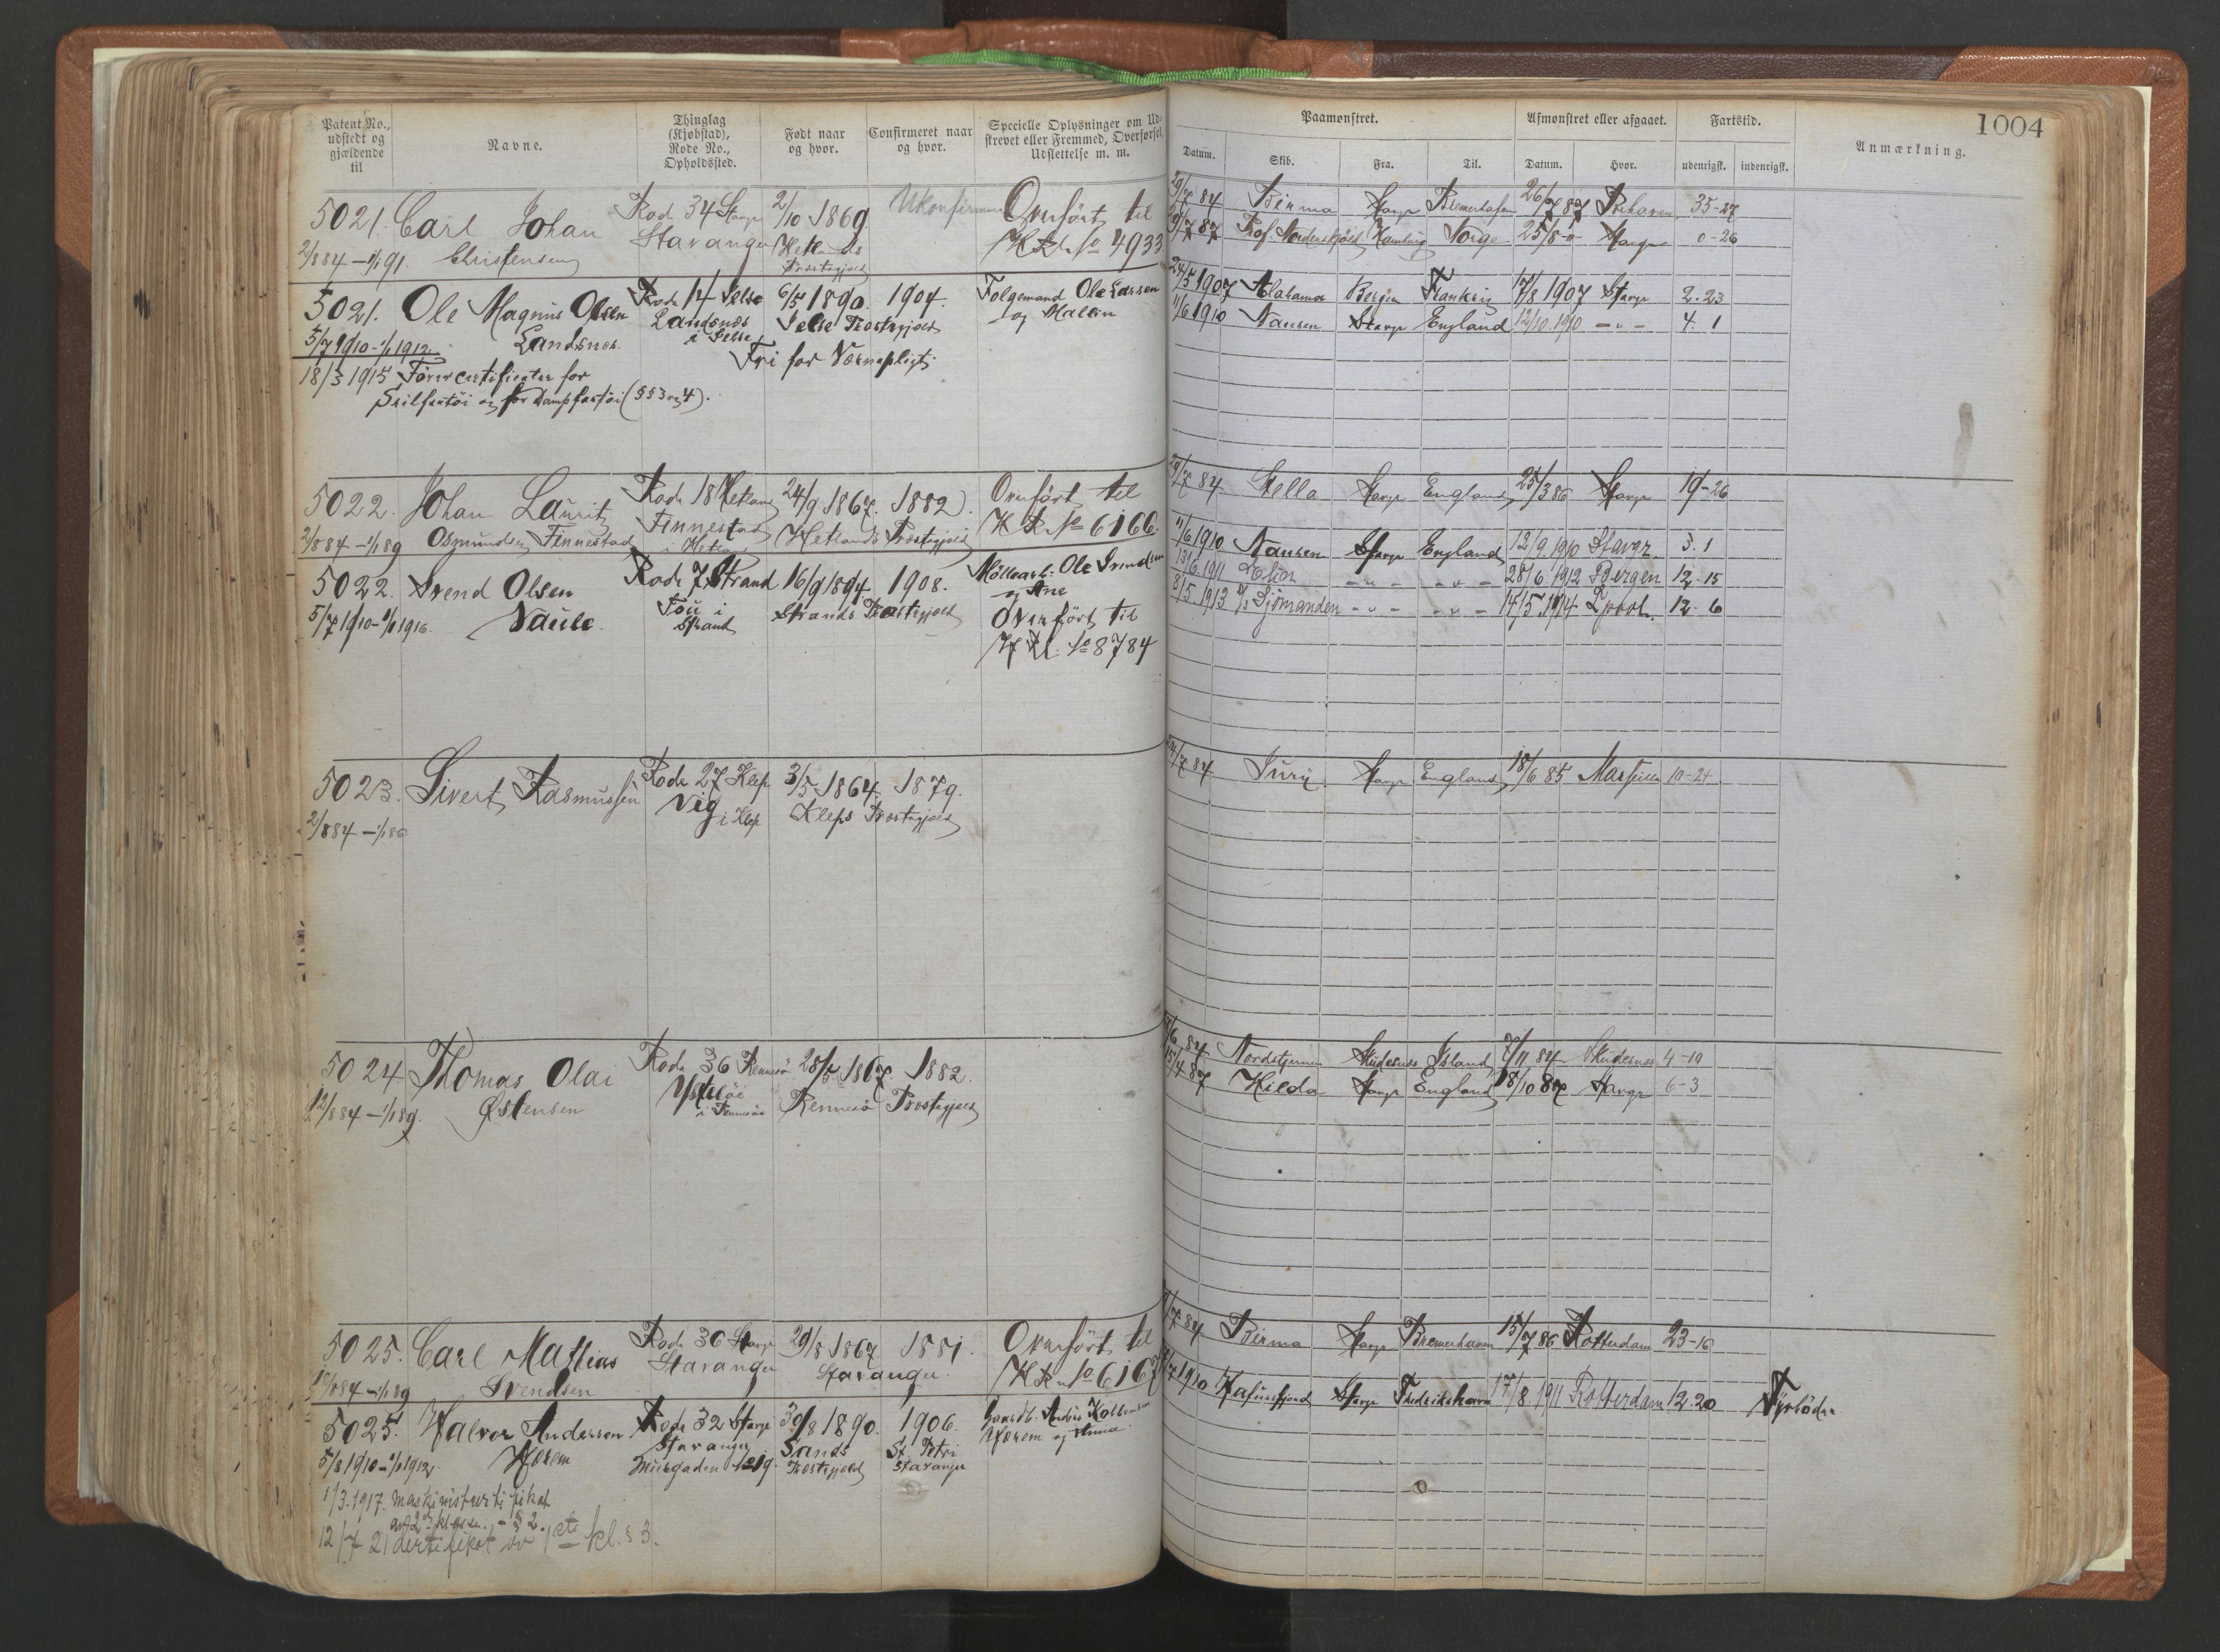 Patent No., udstedt og gjældende til | Navne. | Thinglag (Kjøbstad), Rode No., Opholdssted. | Født naar og hvor. | Confirmeret naar og hvor. | Specielle Oplysninger om Udstrevet eller Fremmed, Overførsel, Udslettelse m. m.
5021. Carl Johan Rode 34 Stavgr 2/10 1869. Ukonfirm Overført til
2/8 84 – 1/1 91. Christensen Stavanger Hetlands Præstegjeld No 4933
5021. Ole Magnus Olsen Rode 14 Jelse 6/5 1890. 1904. Ole Larsen
5/7 1910 – 1/1 1912. Landsnes. Landsnes i Jelse Jelse Præstegjeld og Malene
Fri for Værnepligt.
18/3 1915 Førercertifikater for
Seilfartøi og for Dampfartøi (§§ 3 og 4).
5022. Johan Laurits Rode 18 Hetland 24/9 1867. 1882. Overført til
2/8 84 – 1/1 89 Osmundsen Finnestad Finnestad i Hetland Hetlands Præstegjeld No 6166.
5022. Svend Olsen Rode 7 Strand 16/9 1894. 1908. Ole Svendsen
5/7 1910 – 1/1 1916. Tou i Strand Strands Præstegjeld og Ane
Overført til
No 8784
5023. Sivert Rasmussen Rode 27 Klep 3/5 1864. 1879.
2/8 84 – 1/1 86 Vig i Klep Kleps Præstegjeld
5024 Thomas Olai Rode 36 Rennesø 28/5 1867. 1882.
12/8 84 – 1/1 89. Østensen i Rennesøe Rennesø Præstegjeld
5025. Carl Mathias Rode 36 Stavgr 29/8 1867 1881. Overført til
84 – 1/1 89 Svendsen Stavanger Stavanger. No 6167
5025. Halvor Andersen Rode 32 Stavgr 30/8 1890. 1906.
5/8 1910 – 1/1 1912. Stavanger Sands St. Petri og Anna
Præstegjeld Stavanger
1/3. 1917. maskinistcertifikat
av 2. klasse. - § 2.
12/7 21 certifikat 1ste kl. § 3.
1004
Paamønstret. | Afmønstret eller afgaaet. | Fartstid. | Anmærkning.
Datum. | Skib. | Fra. | Til. | Datum. | Hvor. | udenrigsk. | indenrigsk.
29/7 84 Birma Stavgr Bremerhafen 26/7 87 Brhaven 35-27
87 Prof. Nordenskjöld Hamburg Norge 25/8 -"- Stavgr 0-26
24/5 1907 Alabama Bergen Frankrig 17/8 1907 Stavgr 2-23
11/6 1910 Nansen Stavgr England 12/10. 1910 - " - 4. 1
29/7 84 Stella Stavgr England 25/3 86 Stavgr 19-26
11/6 1910 Nansen Stavgr England 12/9 1910 Stavgr. 3. 1
13/6 1911 - " - - " - 28/6 1912 Bergen 12. 15
8/5 1913 Sjømanden - " - - " - 14/5 1914 Lpool. 12. 6
24/7 84 Stavgr England 18/6 85 Marseille 10-24
84 Nordstjernen Skudesnes Island 7/11 84 Skudesnes 4-19
15/4 87 Hilda Stavgr England 18/10 87 Stavgr 6-3
7 84 Birma Stavgr Bremerhaven 15/7 86 Rotterdam 23-16
7 1910 Hafursfjord Stavgr Frederikshavn 17/8 1911 Rotterdam 12. 20 Fyrbøder